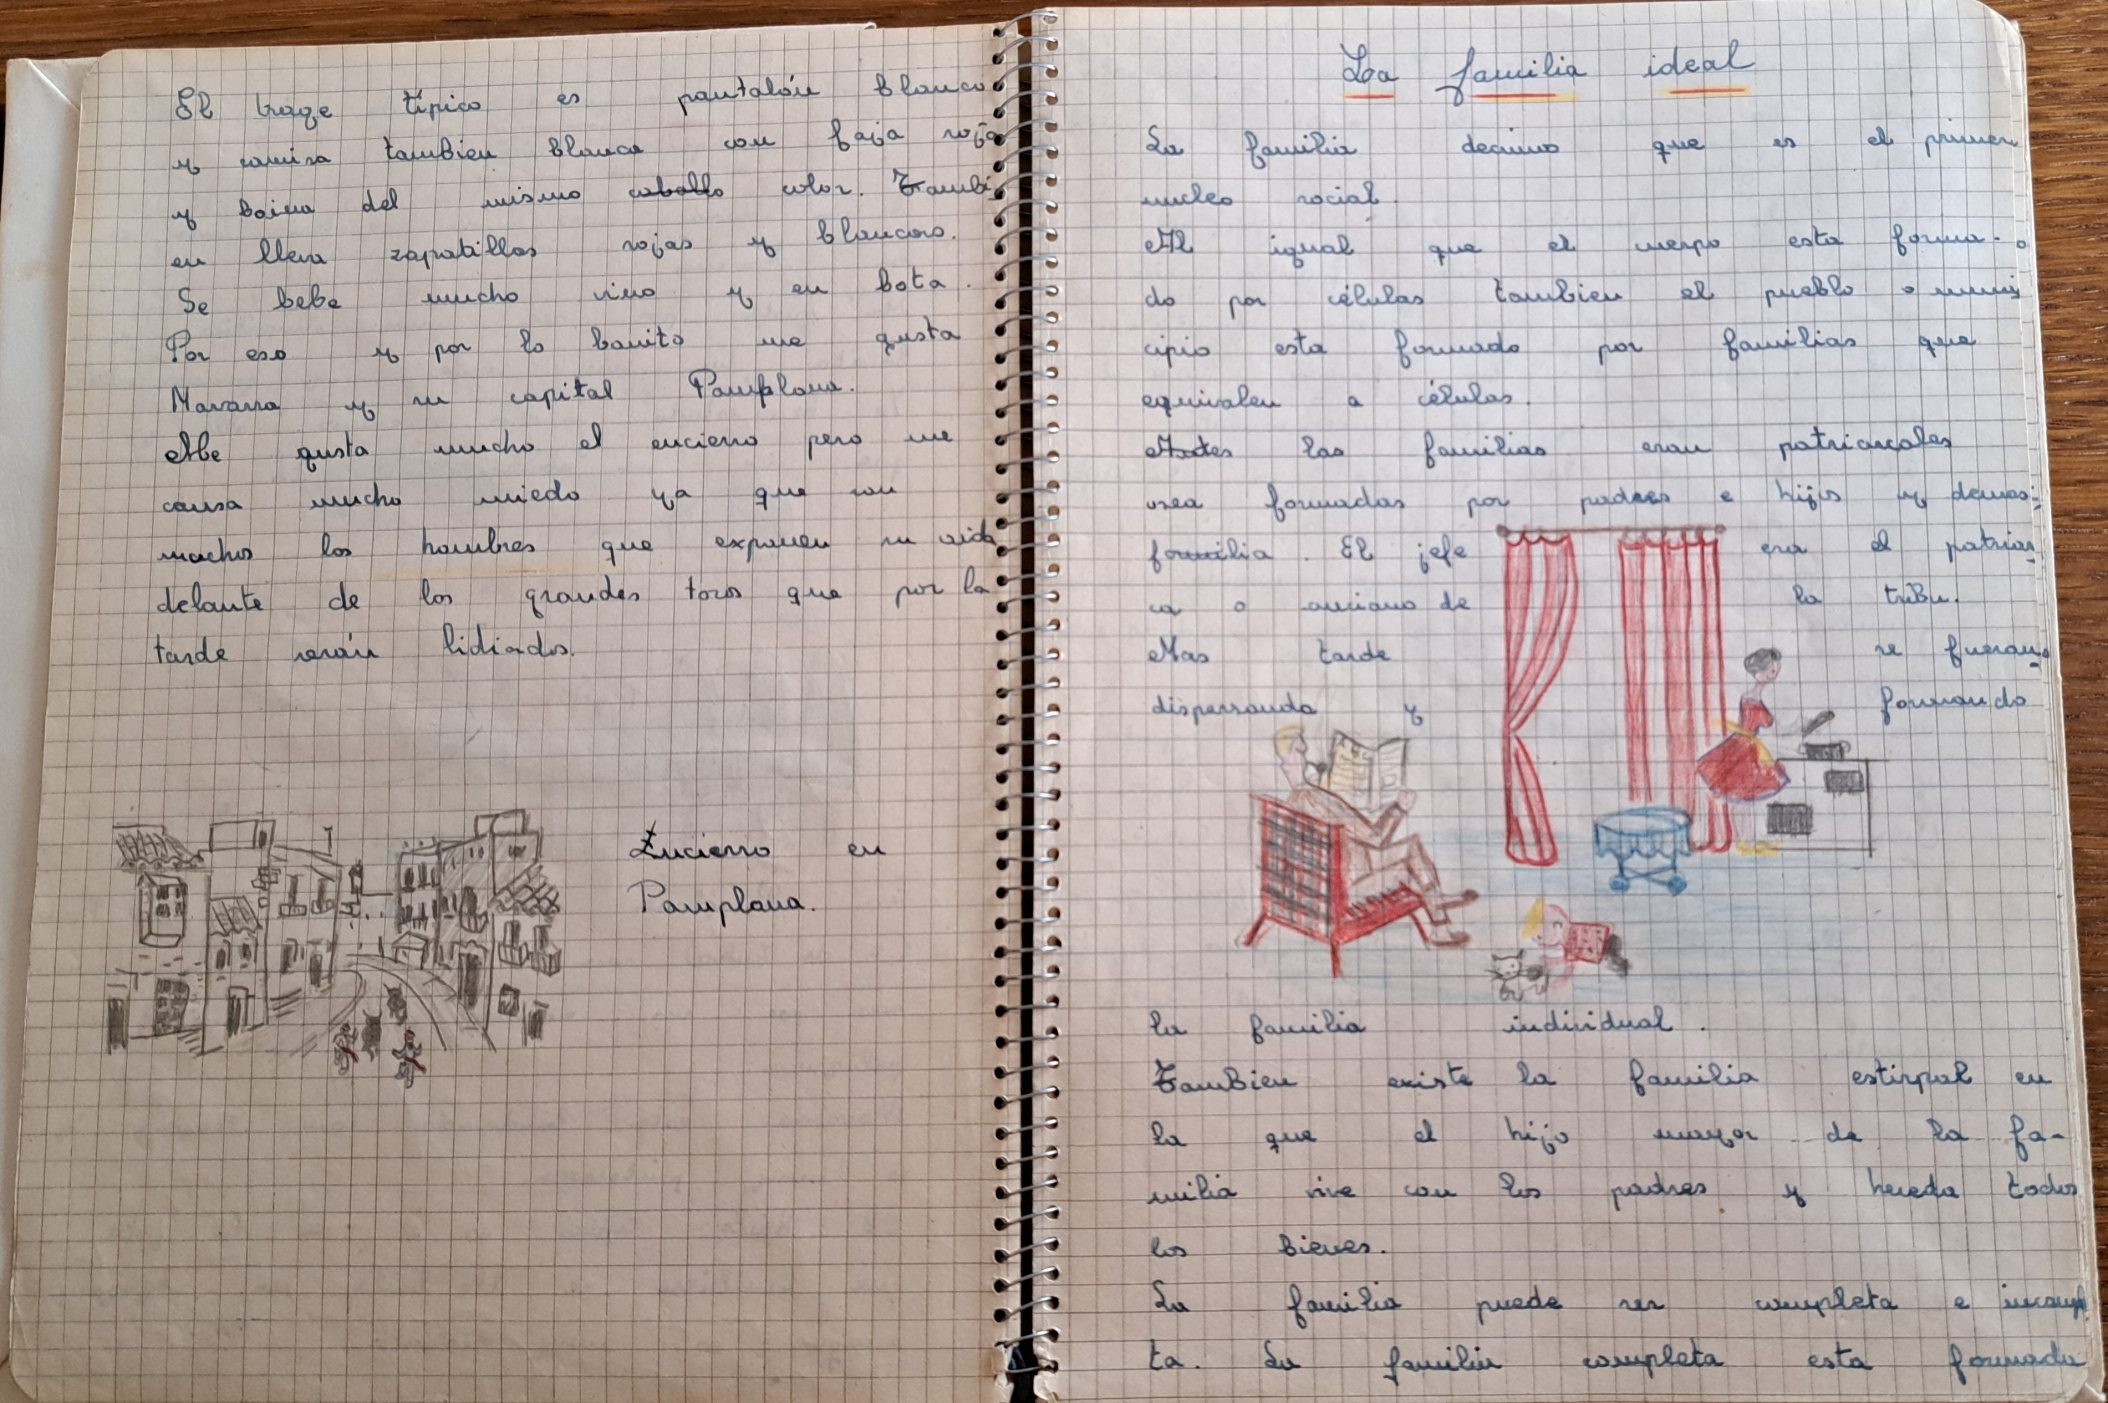 El trage típico es pantalón blanco
y camisa tambien blanca con faja roja
y boina del mismo caballo color. Tambi
en lleva zapatillas rojas y blancas.
Se bebe mucho vino y en bota.
Por eso y por lo bonito me gusta
Navarra y su capital Pamplona.
Me gusta mucho el encierro pero me
causa mucho miedo ya que son
muchos los hombres que exponen su vida
delante de los grandes toros que por la
tarde serán lidiados.
Encierro en
Pamplona.
La familia ideal
La familia decimos que es el primer
nucleo social.
Al igual que el cuerpo esta forma-
do por células tambien el pueblo o muni
cipio esta formado por familias que
equivalen a células.
Antes las familias eran patriarcales
osea formadas por padres e hijos y demas
familia. El jefe era el patriar
ca o anciano de la tribu.
Mas tarde se fueron
dispersando y formando
la familia individual.
Tambien existe la familia estirpal en
la que el hijo mayor de la fa-
milia vive con los padres y hereda todos
los bienes.
La familia puede ser completa e incompl
ta. La familia completa esta formada